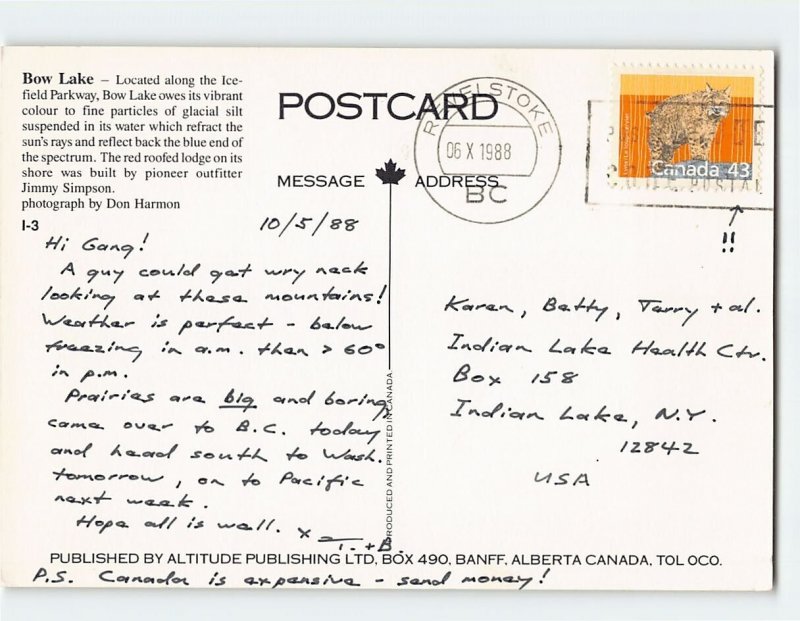 Bow Lake – Located along the Ice-
field Parkway, Bow Lake owes its vibrant
colour to fine particles of glacial silt
suspended in its water which refract the
sun's rays and reflect back the blue end of
the spectrum. The red roofed lodge on its
shore was built by pioneer outfitter
Jimmy Simpson.
photograph by Don Harmon
I-3
POSTCARD
MESSAGE
ADDRESS
REVELSTOKE
06 X 1988
BC
Canada 43
POSTAL
!!
10/5/88
Hi Gang!
A guy could get wry neck
looking at these mountains!
Weather is perfect - below
freezing in a.m. then > 60°
in p.m.
Prairies are big and boring,
came over to B.C. today
and head south to Wash.
tomorrow, on to Pacific
next week.
Hope all is well.
T. + B.
Karen, Betty, Terry + al.
Indian Lake Health Ctr.
Box 158
Indian Lake, N.Y.
12842
USA
PRODUCED AND PRINTED IN CANADA
PUBLISHED BY ALTITUDE PUBLISHING LTD, BOX 490, BANFF, ALBERTA CANADA, TOL OCO.
P.S. Canada is expensive - send money!